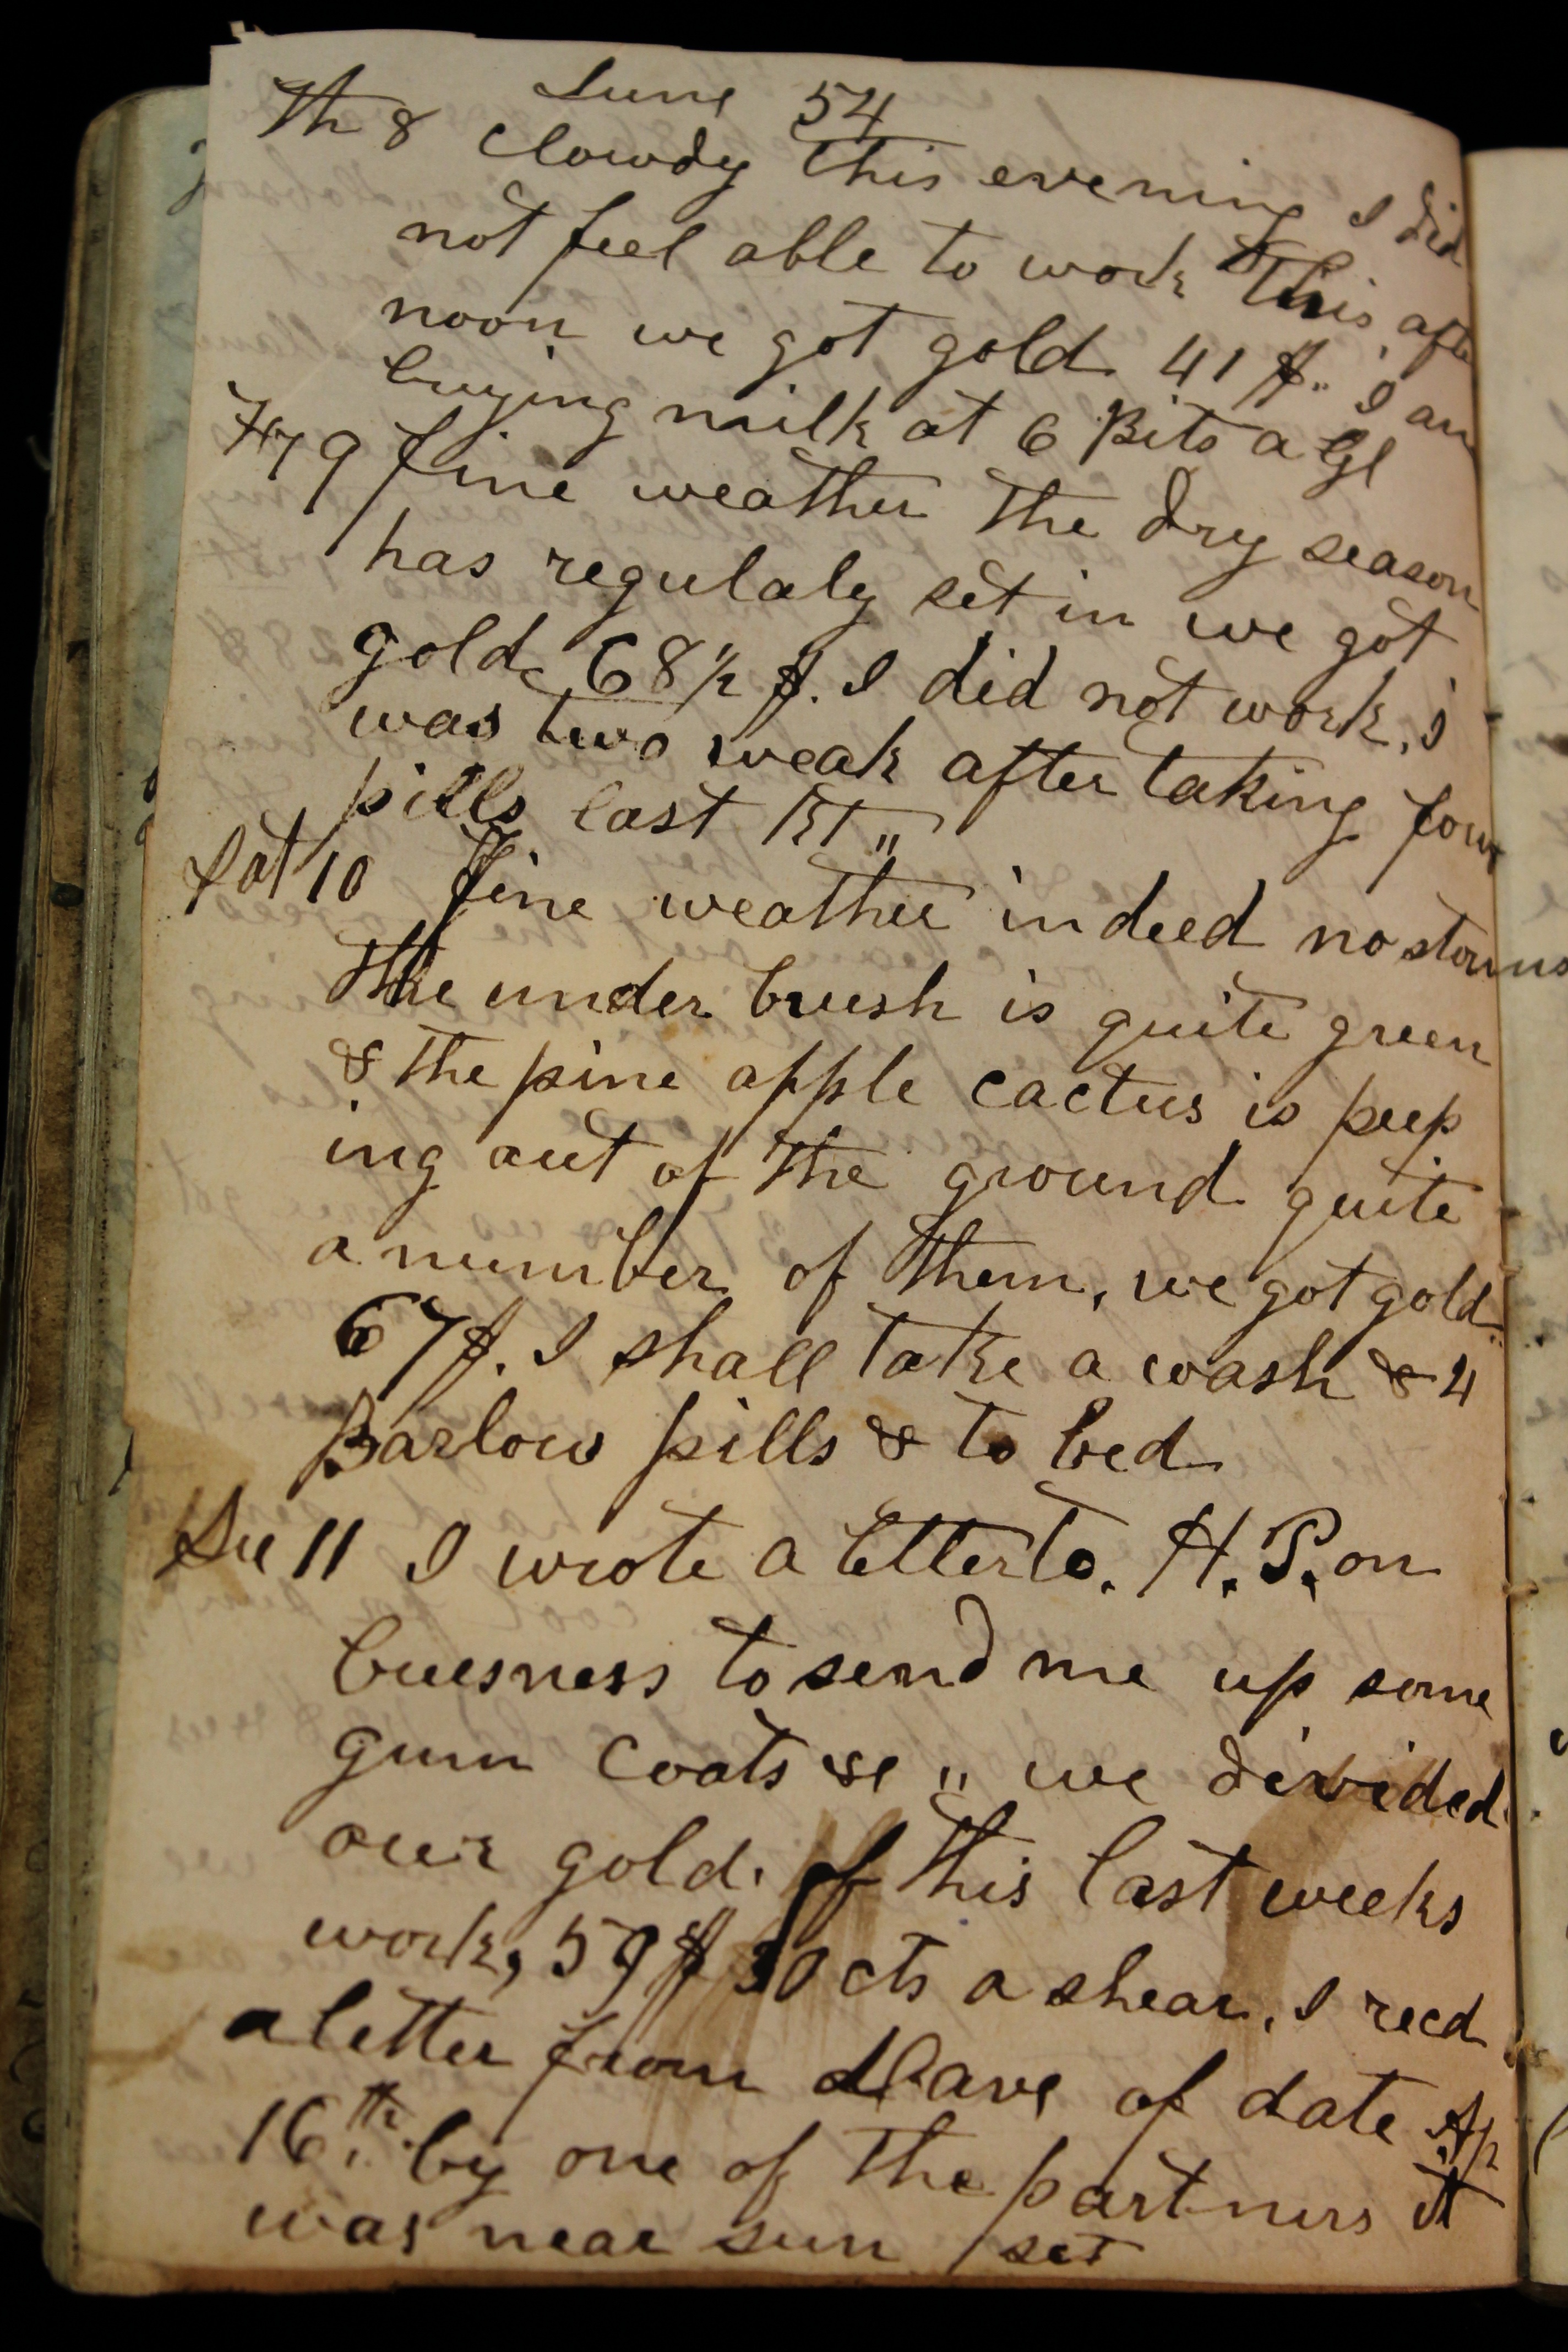 June 54
Th 8 Clowdy this evening I did
not feel able to work this after
noon we got gold 41 $.. I am
buying milk at 6 Bits a Gl
Fry 9 fine weather the dry season
has regulaly set in we got
gold 68 1/2 $. I did not work, i
was two weak after taking four
pills last Nt "
Sat 10 fine weather indeed no storms
the under brush is quite green
& the pine apple cactus is peep
ing out of the ground quite
a number of them, we got gold
67 $. I shall take a wash & 4
Barlow pills & to bed
Su 11 I wrote a letter to. H. P. on
buesness to send me up some
gum coats &c " we divided
our gold. of this last weeks
work, 59 $ 30 cts a shear, I recd
a letter from Dave of date Ap
16th. by one of the partners it
was near sun set